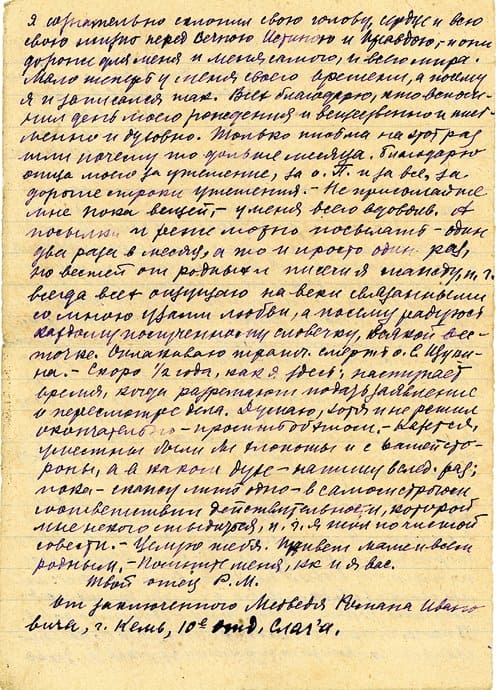 я сознательно склонил свою голову, сердце и всю
свою жизнь перед Вечною Истиною и Правдою, – и они
дороже для меня и меня самого, и всего мира.
Мало теперь у меня своего времени, а посему
я и записался так. Всех благодарю, кто вспом-
нил день моего рождения и вещественно и пись-
менно и духовно. Только письма на этот раз
шли почему то дольше месяца. благодарю
отца моего за утешение, за о. П. и за все, за
дорогие строки утешения. – Не присылайте
мне пока вещей, – у меня всего вдоволь. А
посылки и реже можно посылать – один
два раза в месяц, а то и просто один раз,
но вестей от родных и писем жажду, п. ч.
всегда всех ощущаю на веки связанными
со мною узами любви, а посему радуюсь
каждому полученному словечку, всякой вес-
точке. Оплакиваю смерть о. С. Щуки-
на. – Скоро 1/2 года, как я здесь; наступает
время, когда разрешают подачу заявления
о пересмотре дела. Думаю, хотя и не решил
окончательно – просить об этом. – Кажется,
уместны были бы хлопоты и с вашей сто-
роны, а в каком духе – напишу в след. раз;
пока – скажу лишь одно – в самом строгом
соответствии действительности, которой
мне нечего стыдиться, п. ч. я жил по чистой
совести. – Целую тебя. Привет маме и всем
родным. – Помните меня, как и я вас.
Твой отец Р. М.
От заключенного Медведя Романа Ивано
вича, г. Кемь, 10е отд, Слаг'а.